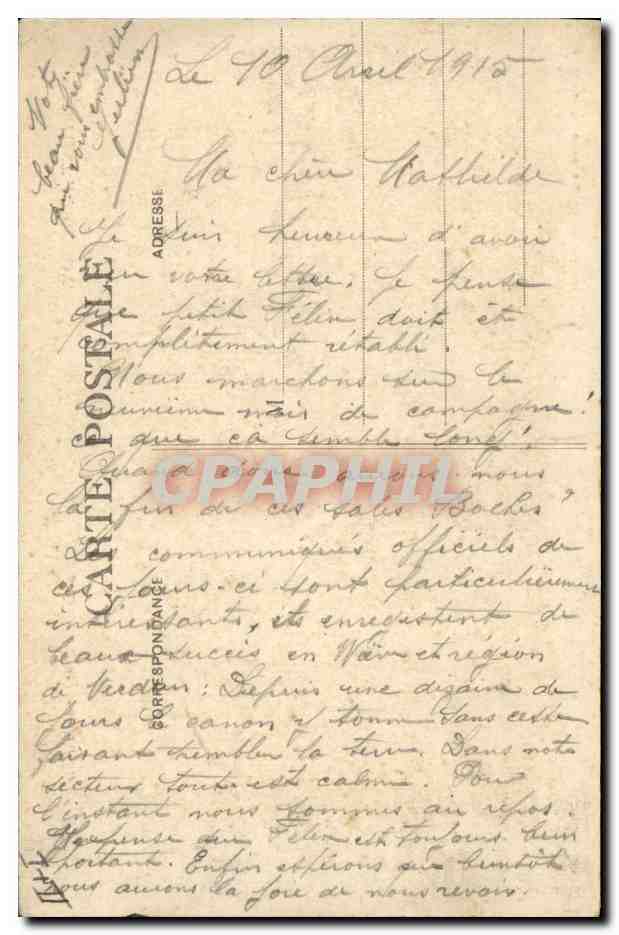 Le 10 Avril 1915
Ma chère Mathilde
Je suis heureux d'avoir
reçu votre lettre. Je pense
que petit Félix doit être
complètement rétabli.
Nous marchons sur le
neuvième mois de campagne!
ce que ça semble long!
Quand donc aurons nous
la fin de ces sales Boches"
Les communiqués officiels de
ces jours-ci sont particulièrement
intéressants, ils enregistrent de
beaux succès en Wœvre et région
de Verdun: Depuis une dizaine de
jours le canon y tonne sans cesse
faisant trembler la terre. Dans notre
secteur toute est calme. Pour
l'instant nous sommes au repos.
pense que Félix est toujours bien
portant. Enfin espérons que bientôt
nous aurons la joie de nous revoir.
Votre
beau frère
qui vous embrasse
CARTE POSTALE
ADRESSE
CORRESPONDANCE
CPAPHIL